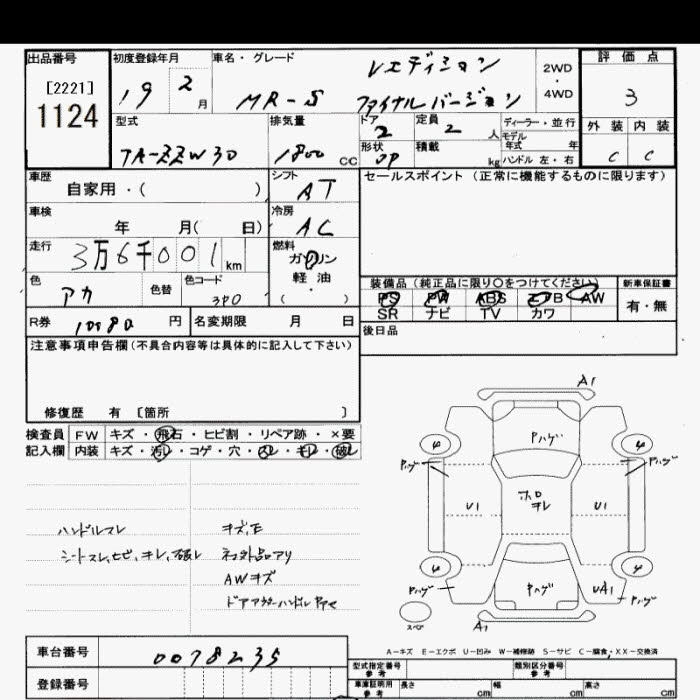 出品番号 初度登録年月 車名・グレード Vエディション 2WD 評価点
[2221] 19 2月 MR-S ファイナルバージョン ・4WD 3
1124
型式 排気量 ドア 定員 ディーラー・並行 外装 内装
TA-ZZW30 1800cc 2 2人 モデル年式 年 C C
形状 OP 積載 kg ハンドル 左・右
車歴 シフト セールスポイント(正常に機能するものに限ります)
自家用・( ) AT
車検 冷房
年 月( 日) AC
走行 燃料
3万6千001km ガソリン
軽・油
( ・ )
色 色替 色コード 装備品(純正品に限り〇をつけてください) 新車保証書
アカ 3P0 PS PW ABS エアB AW 有・無
SR ナビ TV カワ
R券 10080円 名変期限 月 日 後日品
注意事項申告欄(不具合内容等は具体的に記入して下さい)
修復歴 有 [箇所 ]
検査員 FW キズ・飛石・ヒビ割・リペア跡・×要
記入欄 内装 キズ・汚レ・コゲ・穴・スレ・キレ・破レ
A1
Pハゲ
4 4
Pハゲ Pハゲ
U1 ホロ キレ U1
4 4
Pハゲ Pハゲ UA1 Pハゲ
スペア A1
ハンドルスレ キズ,E
シートスレ,ヒビ,キレ,破レ ネコ外品アリ
AWキズ
ドアアウターハンドル
A-キズ E-エクボ U-凹み W-補修跡 S-サビ C-腐食,XX-交換済
車台番号 0078235 型式指定番号 参考 類別区分番号 参考
登録番号 車庫証明用 参考 長さ cm 幅 cm 高さ cm